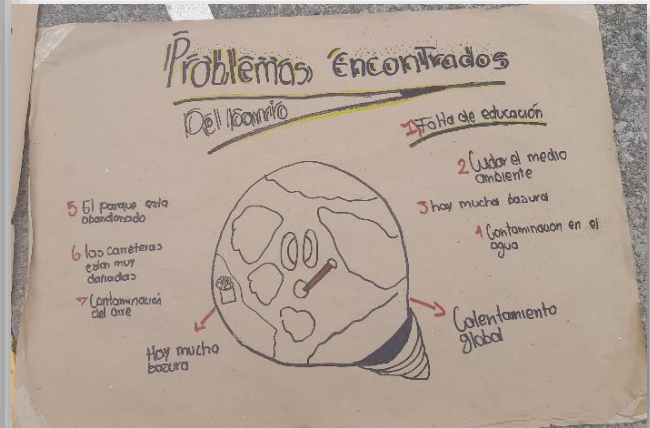 Problemas encontrados
Del barrio
1) Falta de educación
2 Cudar el medio
ambiente
3 hay mucha basura
4 Contaminacion en el
agua
5 El parque esta
abandonado
6 las carreteras
estan muy
dañadas
7 Contaminación
del aire
Hay mucha
basura
Calentamiento
global